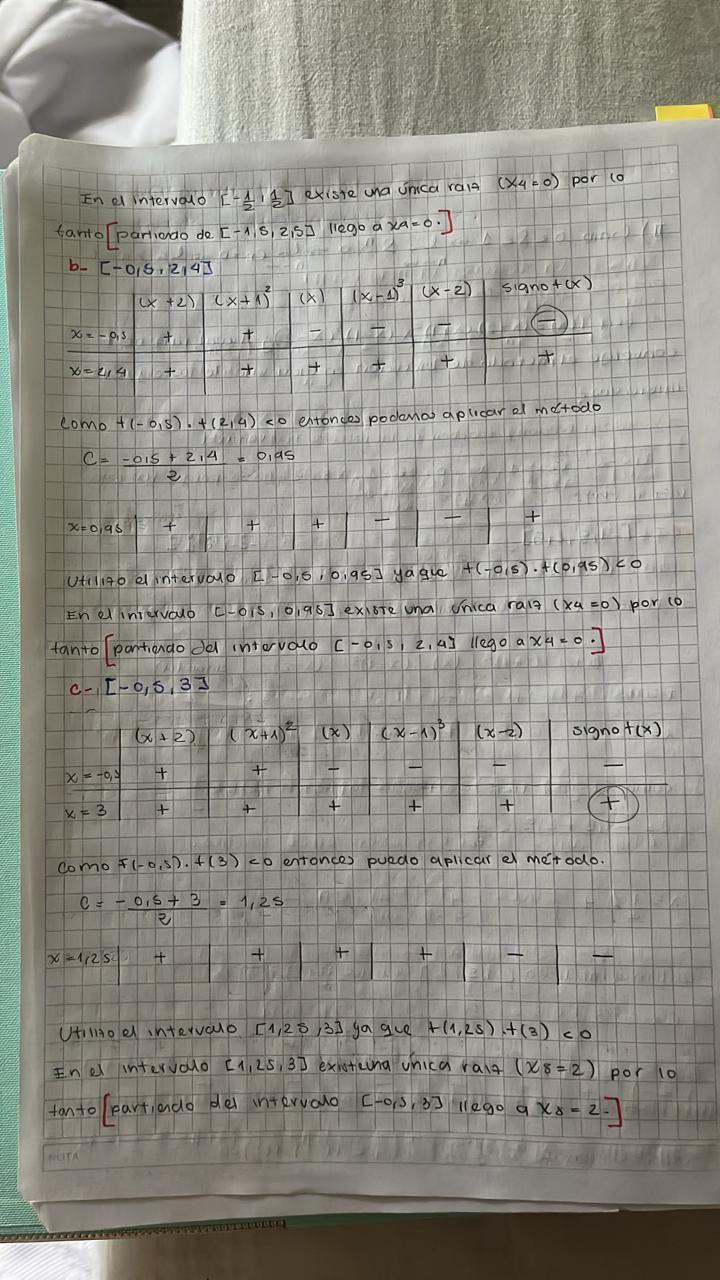 En el intervalo [-1/2, 1/2] existe una única raiz (x4=0) por lo
tanto [partiendo de [-1,5, 2,5] llego a x4=0.]
b- [-0,5, 2,4]
(x+2) | (x+1)² | (x) | (x-1)³ | (x-2) | signo f(x)
x=-0,5 | + | + | - | - | - | -
x=2,4 | + | + | + | + | + | +
Como f(-0,5).f(2,4) <0 entonces podemos aplicar el método
C = -0,5 + 2,4 / 2 = 0,95
x=0,95 | + | + | + | - | - | +
Utilizo el intervalo [-0,5, 0,95] ya que f(-0,5).f(0,95) <0
En el intervalo [-0,5, 0,95] existe una única raiz (x4=0) por lo
tanto [partiendo del intervalo [-0,5, 2,4] llego a x4=0.]
c- [-0,5, 3]
(x+2) | (x+1)² | (x) | (x-1)³ | (x-2) | signo f(x)
x=-0,5 | + | + | - | - | - | -
x=3 | + | + | + | + | + | +
Como f(-0,5).f(3) <0 entonces puedo aplicar el método.
C = -0,5 + 3 / 2 = 1,25
x=1,25 | + | + | + | + | - | -
Utilizo el intervalo [1,25, 3] ya que f(1,25).f(3) <0
En el intervalo [1,25, 3] existe una única raiz (x8=2) por lo
tanto [partiendo del intervalo [-0,5, 3] llego a x8=2.]
NOTA